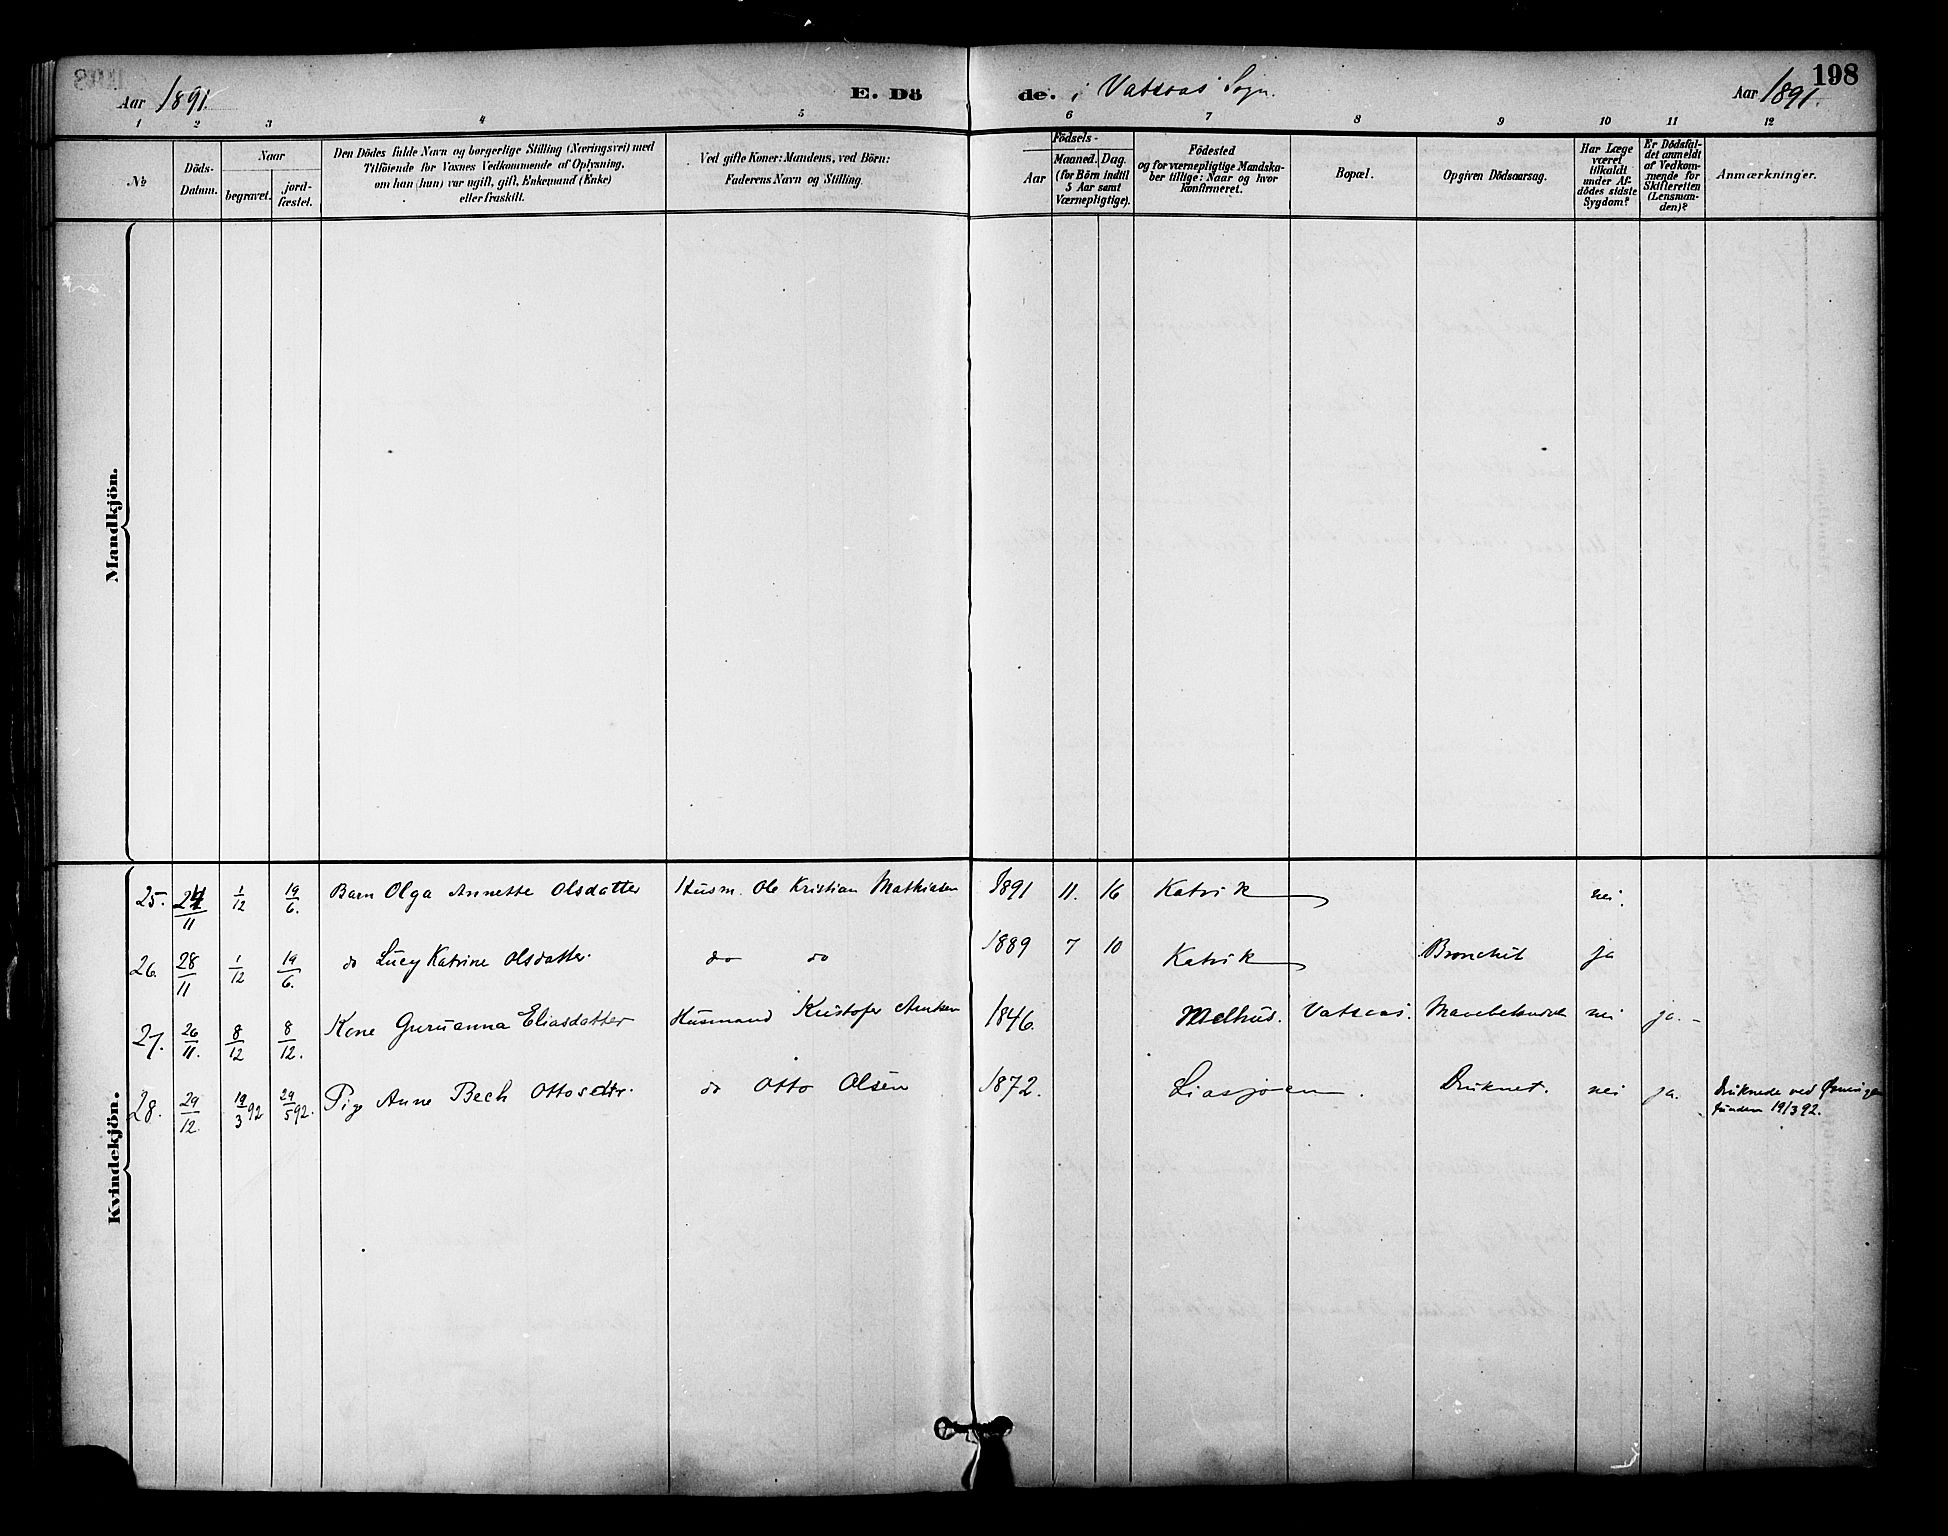 Aar 1891. E. Dö de. i Vatsaas Sogn. Aar 1891. 198
1 2 3 4 5 6 7 8 9 10 11 12
№
Döds-
Datum.
Naar
begravet.
jord-
fæstet.
Den Dödes fulde Navn og borgerlige Stilling (Næringsvei) med
Tilföiende for Voxnes Vedkommende af Oplysning,
om han (hun) var ugift, gift, Enkemand (Enke)
eller fraskilt.
Ved gifte Koner: Mandens, ved Börn:
Faderens Navn og Stilling.
Födsels-
Aar
Maaned. Dag.
(for Börn indtil
5 Aar samt
Værnepligtige).
Födested
og for værnepligtige Mandska-
ber tillige: Naar og hvor
konfirmeret.
Bopæl.
Opgiven Dödsaarsag.
Har Læge
været
tilkaldt
under Af-
dödes sidste
Sygdom?
Er Dödsfal-
det anmeldt
af Vedkom-
mende for
Skifteretten
(Lensman-
den)?
Anmærkninger.
Mandkjön.
Kvindekjön.
25. 24/11 1/12 19/6. Barn Olga Annette Olsdatter Husm. Ole Kristian Mathiasen 1891 11. 16 Katvik nei.
26. 28/11 1/12 19/6. do Lucy Katrine Olsdatter. do do 1889 7 10 Katvik Bronchit ja
27. 26/11. 8/12 8/12. Kone Guruanna Eliasdatter Husmand Kristofer 1846. Melhus. Vatsaas. nei ja.
28. 29/12. 19/3 92 29/5 92. Pige Anne Bech Ottosdtr. do Otto Olsen 1872. Liasjøen. Druknet. nei ja. Druknede ved
funden 19/3 92.